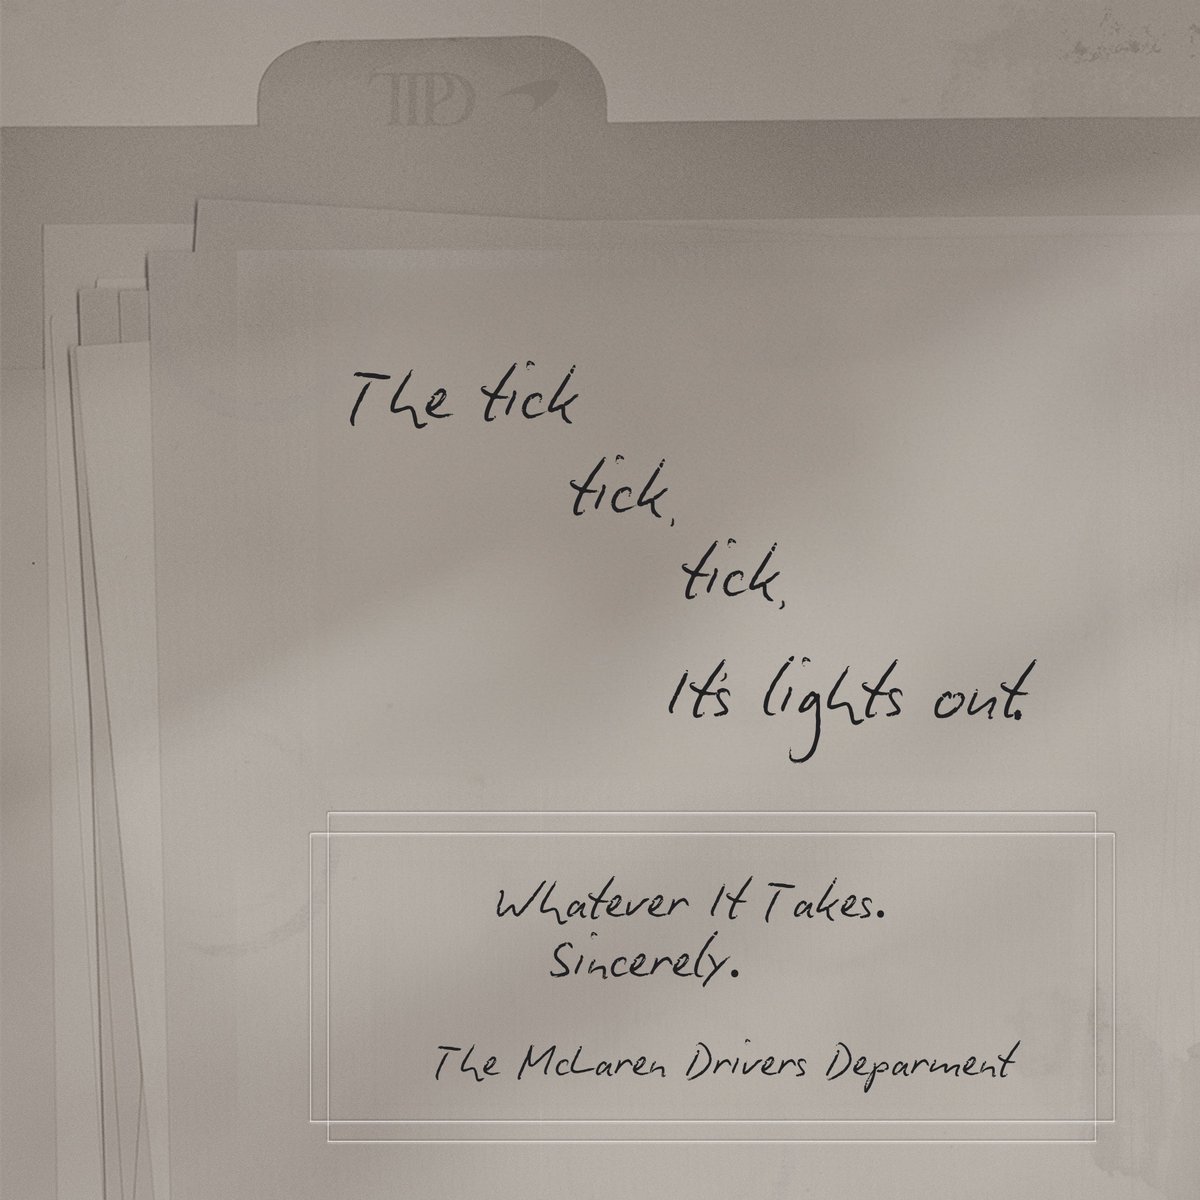 The tick
tick,
tick,
It's lights out.
Whatever It Takes.
Sincerely.
The McLaren Drivers Deparment